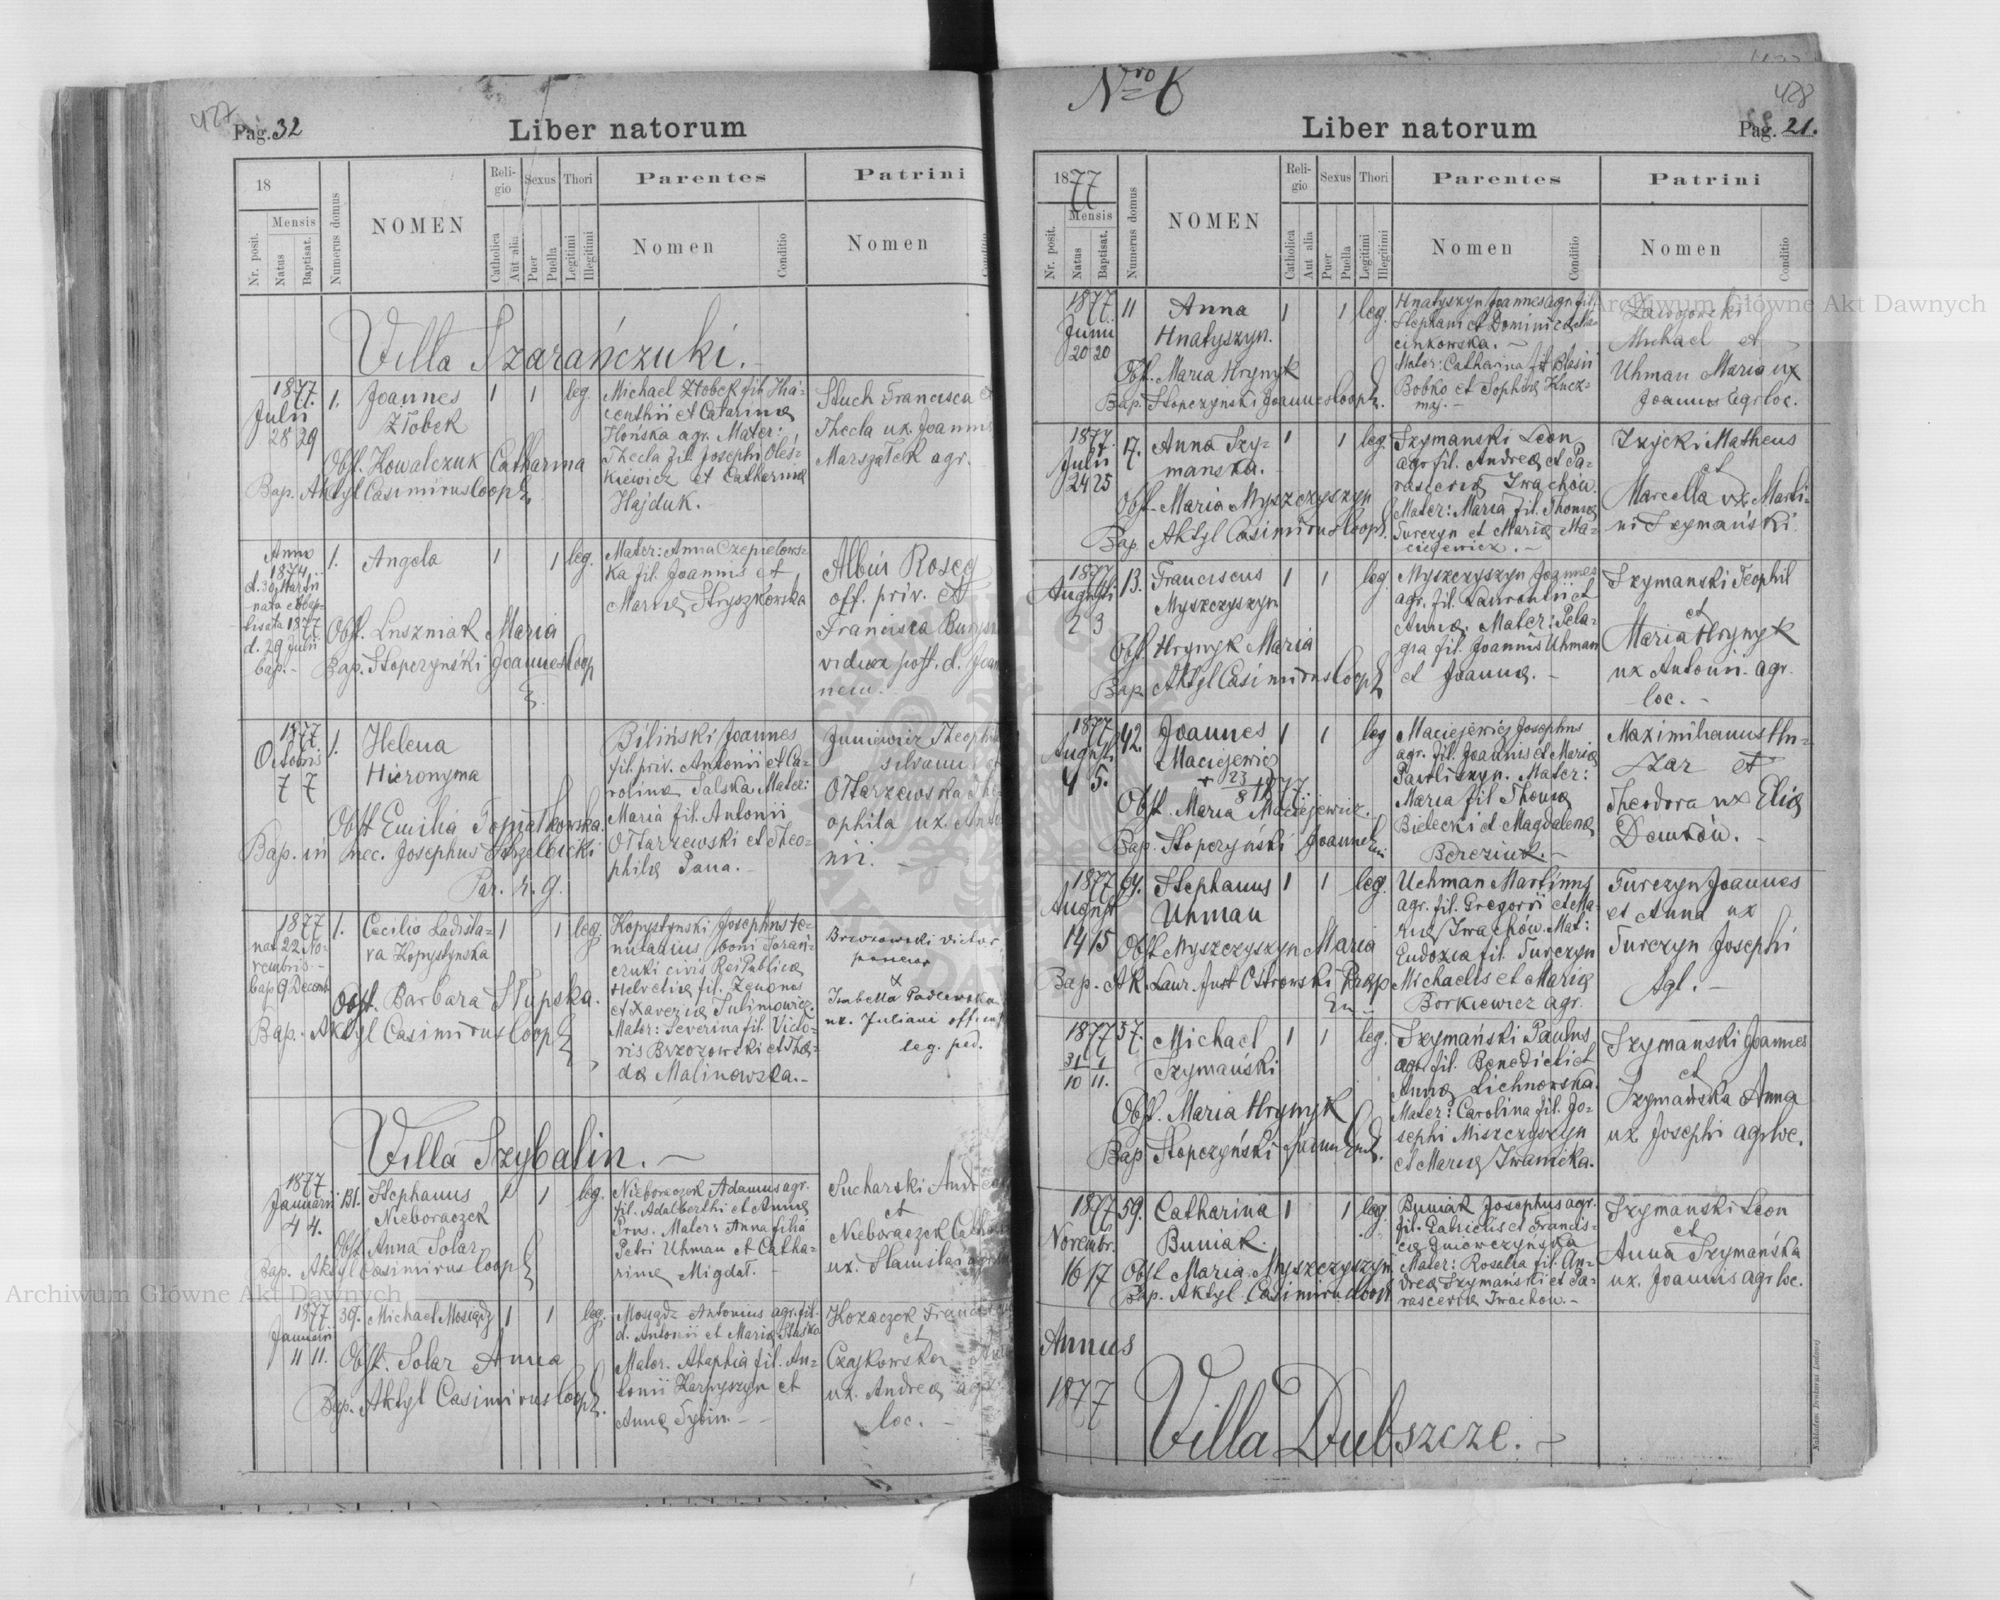 427
Pag. 32
Liber natorum
18
Mensis
Nr. posit.
Natus
Baptisat.
Numerus domus
NOMEN
Religio
Catholica
Aut alia
Sexus
Puer
Puella
Thori
Legitimi
Illegitimi
Parentes
Nomen
Conditio
Patrini
Nomen
Villa Szarańczuki.
1877.
Julii
28 29
1.
Joannes
Złobek
1 1 leg.
Obst. Kowalczuk Catharina
Bap. Aktyl Casimirus Coop
Michael Złobek fil. Hia-
centhii et Catarina
Hońska agr. Mater:
Thecla fil. Josephi Oleś-
kiewicz et Catharina
Hajduk.
Stuch Francisca et
Thecla ux. Joannis
Marszałek agr.
Anno
1874
d. 30 Martii
nata et bap-
tisata 1877
d. 29 Julii
bap.
1.
Angela
1 1 leg.
Obst. Luszniak Maria
Bap. Stopczyński Joannes Coop
Mater: Anna Czepielows-
ka fil. Joannis et
Maria Stryszkowska
off. priv. et
Francisca
vidua post. d. Joan
nem.
1877
Octobris
7 7
1.
Helena
Hieronyma
Obst. Emilia
Bap. in nec. Josephus Strzelbicki
Par. r. g.
Biliński Joannes
fil. priv. Antonii et Ca-
rolina Salska Mater:
Maria fil. Antonii
Ottarzewski et Theo-
phila Pana.
Juniewicz Theophil
silvanu et
Ottarzewska The-
ophila ux. Anto
nii.
1877
nat 22 No-
vembris
bap 9 Decemb
1.
Cecilia Ladisla-
va Kopystynska
1 1 leg
Obst. Barbara Słupska.
Bap. Aktyl Casimirus Coop
Kopystynski Josephus te-
nutarius boni Szarań-
czuki civis Rei Publica
Helvetia fil. Zenonis
et Xaveria Sulimowicz
Mater: Severina fil. Victo-
ris Brzozowski et Thec-
da Malinowska.
Brzozowski Victor
et
Isabella Padlewska
ux. Juliani offic
leg. ped.
Villa Szybalin.
1877
Januarii
4 4.
131.
Stephanus
Nieboraczek
1 1 leg.
Obst. Anna Solar
Bap. Aktyl Casimirus Coop
Nieboraczek Adamus agr.
fil. Adalberthi et Anna
Prus. Mater: Anna filia
Petri Uhman et Catha-
rina Migdał.
Sucharski Andreas
et
Nieboraczek Catha
ux. Stanislai agr.
1877
Januarii
11 11.
39.
Michael Mosiądz
1 1 leg.
Obst. Solar Anna
Bap. Aktyl Casimirus Coop.
Mosiądz Antonius agr. fil.
d. Antonii et Maria Stuśka
Mater. Ahaphia fil. An-
tonii Harnyszyn et
Anna Sybin.
Kozaczek Franc
et
Czajkowska
ux. Andrea agr
loc.
Nro 6
428
Liber natorum
Pag. 21.
1877
Mensis
Nr. posit.
Natus
Baptisat.
Numerus domus
NOMEN
Religio
Catholica
Aut alia
Sexus
Puer
Puella
Thori
Legitimi
Illegitimi
Parentes
Nomen
Conditio
Patrini
Nomen
Conditio
1877
Junii
20 20
11
Anna
Hnatyszyn.
1 1 leg.
Obst. Maria Hrynyk
Bap. Stopczynski Joannes Coop.
Hnatyszyn Joannes agr. fil.
Stephani et Dominica Ma-
cinkowska.
Mater: Catharina fil. Blasii
Bobko et Sophia Kucz-
maj.
Zawojowski
Michael et
Uhman Maria ux
Joannis agr. loc.
1877
Julii
24 25
17.
Anna Szy-
manska.
1 1 leg.
Obst. Maria Myszczyszyn
Bap Aktyl Casimirus Coop.
Szymanski Leon
agr. fil. Andrea et Pa-
rascevia Iwachów.
Mater: Maria fil. Thoma
Turczyn et Maria Ma-
ciejewicz.
Izycki Matheus
et
Marcella ux. Marti-
ni Szymański.
1877
Augusti
2 3
13.
Franciscus
Myszczyszyn
1 1 leg
Obst Hrynyk Maria
Bap Aktyl Casimirus Coop
Myszczyszyn Joannes
agr. fil. Laurentii et
Anna. Mater: Pela-
gia fil. Joannis Uhman
et Joanna.
Szymanski Teophil
et
Maria Hrynyk
ux Antoni. agr.
loc.
1877
Augusti
4 5.
42.
Joannes
Maciejewicz
+ 23/8 1877.
1 1 leg
Obst. Maria Maciejewicz.
Bap. Stopczyński Joannes
Maciejewicz Josephus
agr. fil. Joannis et Maria
Pawliszyn. Mater:
Maria fil Thoma
Bielecki et Magdalena
Bereziuk.
Maximilianus Hu-
zar et
Theodora ux Elia
Demków.
1877
August
14 15
64.
Stephanus
Uhman
1 1 leg.
Obst Myszczyszyn Maria
Bap. Ak. Laur. Just Ostrowski Præp
Uchman Martinus
agr. fil. Gregorii et Ma-
ria Iwachów. Mat:
Eudoxia fil. Turczyn
Michaelis et Maria
Borkiewicz agr.
Turczyn Joannes
et Anna ux
Turczyn Josephi
Agl.
1877
31 1
10 11.
57.
Michael
Szymański
1 1 leg.
Obst. Maria Hrynyk
Bap Stopczyński
Szymański Paulus
agr. fil. Benedicti et
Anna Lichnowska.
Mater: Carolina fil. Jo-
sephi Miszczyszyn
et Maria Iwanicka.
Szymanski Joannes
et
Szymańska Anna
ux Josephi agr. loc.
1877
Novembr.
16 17
59.
Catharina
Buniak.
1 1 leg
Obst Maria Myszczyszyn
Bap. Aktyl Casimirus Coop
Buniak Josephus agr.
fil. Gabrielis et Francis-
ca Gniowczyńska
Mater: Rosalia fil. An-
drea Szymański et Pa-
rascevia Iwachow.
Szymanski Leon
et
Anna Szymańska
ux. Joannis agr loc.
Annus
1877
Villa Dubszcze.
Archiwum Główne Akt Dawnych
Archiwum Główne Akt Dawnych